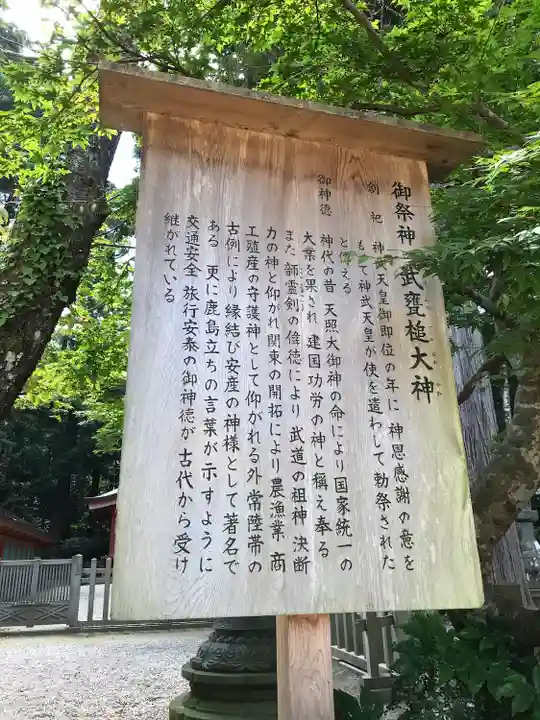 御祭神 武甕槌大神
創祀 神武天皇御即位の年に 神恩感謝の意を
もって神武天皇が使を遣わして勅祭された
と伝える
御神徳 神代の昔 天照大御神の命により国家統一の
大業を果され 建国功労の神と称え奉る
また韴霊剣の偉徳により 武道の祖神 決断
力の神と仰がれ 関東の開拓により 農漁業 商
工殖産の守護神として仰がれる外 常陸帯の
古例により縁結び安産の神様として著名で
ある 更に鹿島立ちの言葉が示すように
交通安全 旅行安泰の御神徳が 古代から受け
継がれている